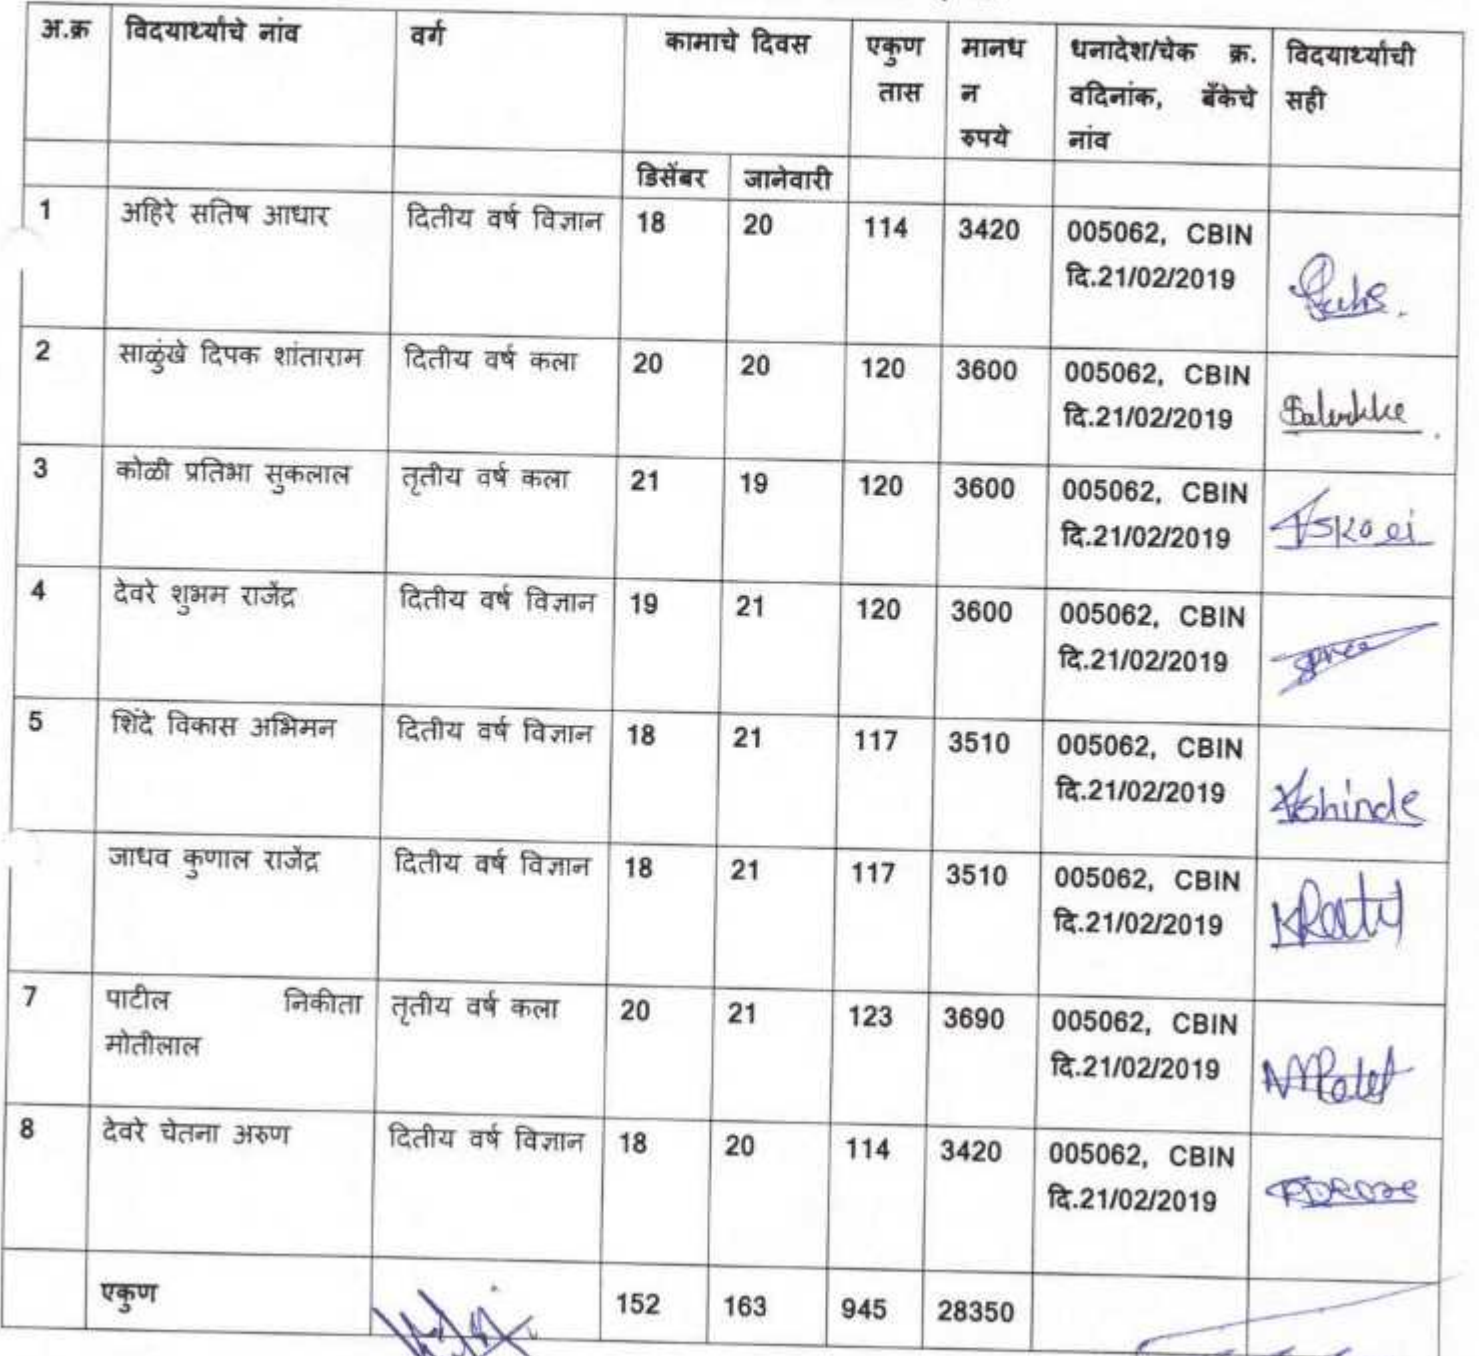 अ.क्र विदयार्थ्याचे नांव वर्ग कामाचे दिवस एकुण तास मानधन रुपये धनादेश/चेक क्र. वदिनांक, बँकेचे नांव विदयार्थ्याची सही
डिसेंबर जानेवारी
1 अहिरे सतिष आधार दितीय वर्ष विज्ञान 18 20 114 3420 005062, CBIN
दि.21/02/2019
2 साळुंखे दिपक शांताराम दितीय वर्ष कला 20 20 120 3600 005062, CBIN
दि.21/02/2019
3 कोळी प्रतिभा सुकलाल तृतीय वर्ष कला 21 19 120 3600 005062, CBIN
दि.21/02/2019
4 देवरे शुभम राजेंद्र दितीय वर्ष विज्ञान 19 21 120 3600 005062, CBIN
दि.21/02/2019
5 शिंदे विकास अभिमन दितीय वर्ष विज्ञान 18 21 117 3510 005062, CBIN
दि.21/02/2019 VShinde
जाधव कुणाल राजेंद्र दितीय वर्ष विज्ञान 18 21 117 3510 005062, CBIN
दि.21/02/2019
7 पाटील निकीता तृतीय वर्ष कला 20 21 123 3690 005062, CBIN
मोतीलाल दि.21/02/2019
8 देवरे चेतना अरुण दितीय वर्ष विज्ञान 18 20 114 3420 005062, CBIN
दि.21/02/2019
एकुण 152 163 945 28350